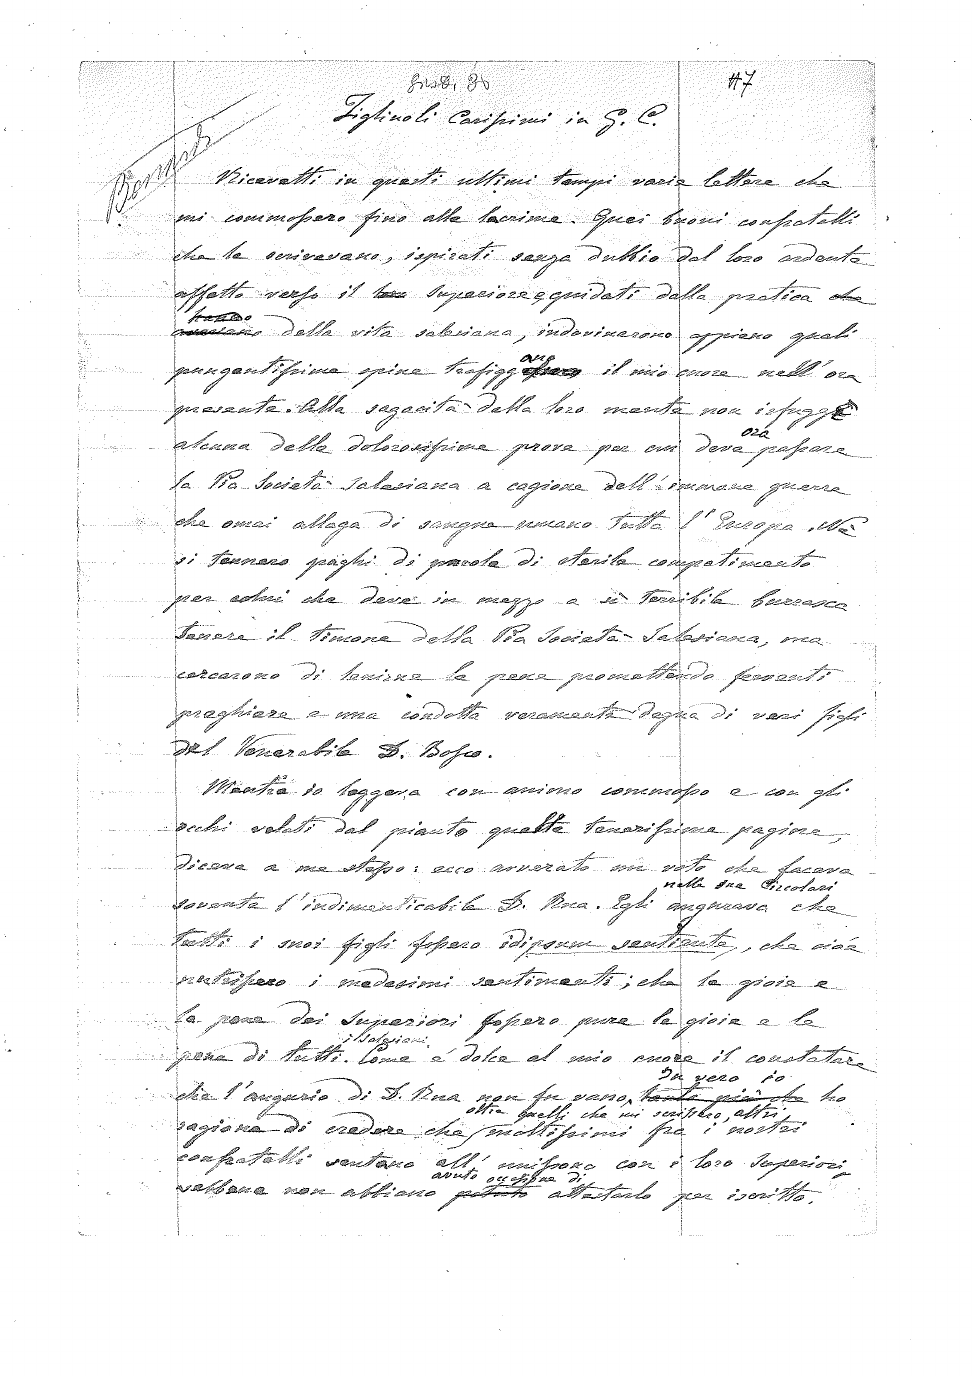 #7
Figliuoli Carissimi in G. C.
Ricevetti in questi ultimi tempi varie lettere che
mi commossero fino alle lacrime. Quei buoni confratelli
che le scrivevano, ispirati senza dubbio dal loro ardente
affetto verso il loro Superiore e guidati dalla pratica che
hanno
della vita salesiana, indovinarono appieno quali
ano
pungentissime spine trafigg il mio cuore nell'ora
presente. Alla sagacità della loro mente non isfugge
ora
alcuna delle dolorosissime prove per cui deve passare
la Pia Società Salesiana a cagione dell'immane guerra
che omai allaga di sangue umano tutta l'Europa. Nè
si tennero paghi di parole di sterile compatimento
per colui che deve in mezzo a sì terribile burrasca
tenere il timone della Pia Società Salesiana, ma
cercarono di lenirne le pene promettendo ferventi
preghiere e una condotta veramente degna di veri figli
del Venerabile D. Bosco.
Mentre io leggeva con animo commosso e con gli
occhi velati dal pianto quelle tenerissime pagine,
diceva a me stesso: ecco avverato un voto che faceva
nelle sue Circolari
sovente l'indimenticabile D. Rua. Egli augurava che
tutti i suoi figli fossero idipsum sentientes, che cioè
nutrissero i medesimi sentimenti; che le gioie e
le pene dei Superiori fossero pure le gioie e le
i Salesiani
pene di tutti. Come è dolce al mio cuore il constatare
In vero io
che l'augurio di D. Rua non fu vano, tanto più che ho
oltre quelli che mi scrissero, altri
ragione di credere che moltissimi fra i nostri
confratelli sentano all'unissono con i loro Superiori,
avuto occasione di
sebbene non abbiano potuto attestarlo per iscritto.